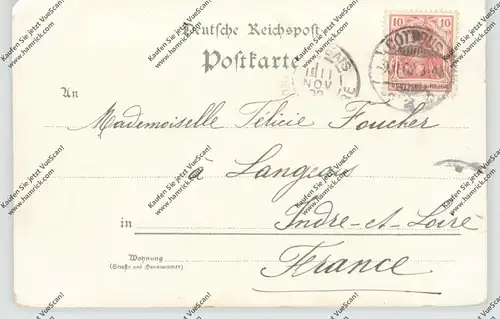 Deutsche Reichspost
Postkarte
An
Mademoiselle Félicie Foucher
à Langeais
in Indre-et-Loire
Wohnung
(Straße und Hausnummer)
France
10
10
COTTBUS
EAIS
11
NOV
Kaufen Sie jetzt VueScan!
www.hamrick.com